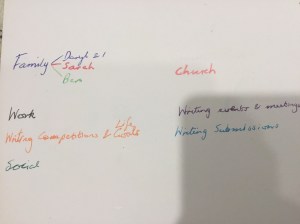 Family
Sarah
Ben
Church
Work
Writing events & meetings
Writing Competitions & Life Goals
Writing Submissions
Social